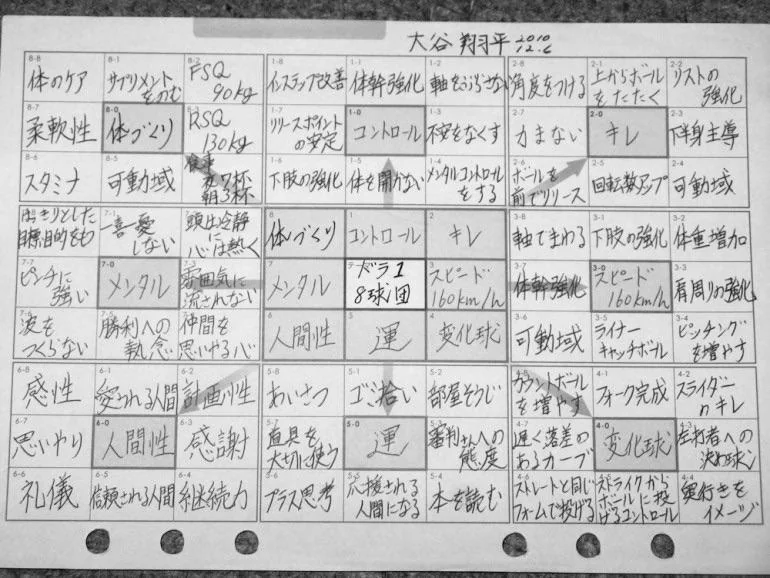 大谷 翔平 2010
12.6
8-8
体のケア
8-1
サプリメント
をのむ
8-2
FSQ
90kg
8-7
柔軟性
8-0
体づくり
RSQ
130kg
8-6
スタミナ
8-5
可動域
食事
夜7杯
朝3杯
1-8
インステップ改善
1-1
体幹強化
1-2
軸をぶらさない
1-7
リリースポイント
の安定
1-0
コントロール
1-3
不安をなくす
1-6
下肢の強化
1-5
体を開かない
1-4
メンタルコントロール
をする
2-8
角度をつける
2-1
上からボール
をたたく
2-2
リストの
強化
2-7
力まない
2-0
キレ
2-3
下半身主導
2-6
ボールを
前でリリース
2-5
回転数アップ
2-4
可動域
はっきりとした
目標目的をも
7-1
しない
頭は冷静
に
心は熱く
7-7
ピンチに
強い
7-0
メンタル
7-3
雰囲気に
流されない
波を
つくらない
7-5
勝利への
執念
仲間を
思いやる心
8
体づくり
1
コントロール
2
キレ
7
メンタル
ドラ1
8球団
3
スピード
160km/h
6
人間性
5
運
4
変化球
3-8
軸でまわる
3-1
下肢の強化
3-2
体重増加
3-7
体幹強化
3-0
スピード
160km/h
3-3
肩周りの強化
3-6
可動域
3-5
ライナー
キャッチボール
3-4
ピッチング
を増やす
6-8
感性
6-1
愛される人間
6-2
計画性
6-7
思いやり
6-0
人間性
6-3
感謝
6-6
礼儀
6-5
信頼される人間
6-4
継続力
5-8
あいさつ
5-1
ゴミ拾い
5-2
部屋そうじ
5-7
道具を
大切に使う
5-0
運
5-3
審判さんへの
態度
5-6
プラス思考
5-5
応援される
人間になる
5-4
本を読む
4-8
カウントボール
を増やす
4-1
フォーク完成
4-2
スライダー
のキレ
4-7
遅く落差の
あるカーブ
4-0
変化球
4-3
左打者への
決め球
4-6
ストレートと同じ
フォームで投げる
ストライクから
ボールに投
げるコントロール
4-4
奥行きを
イメージ